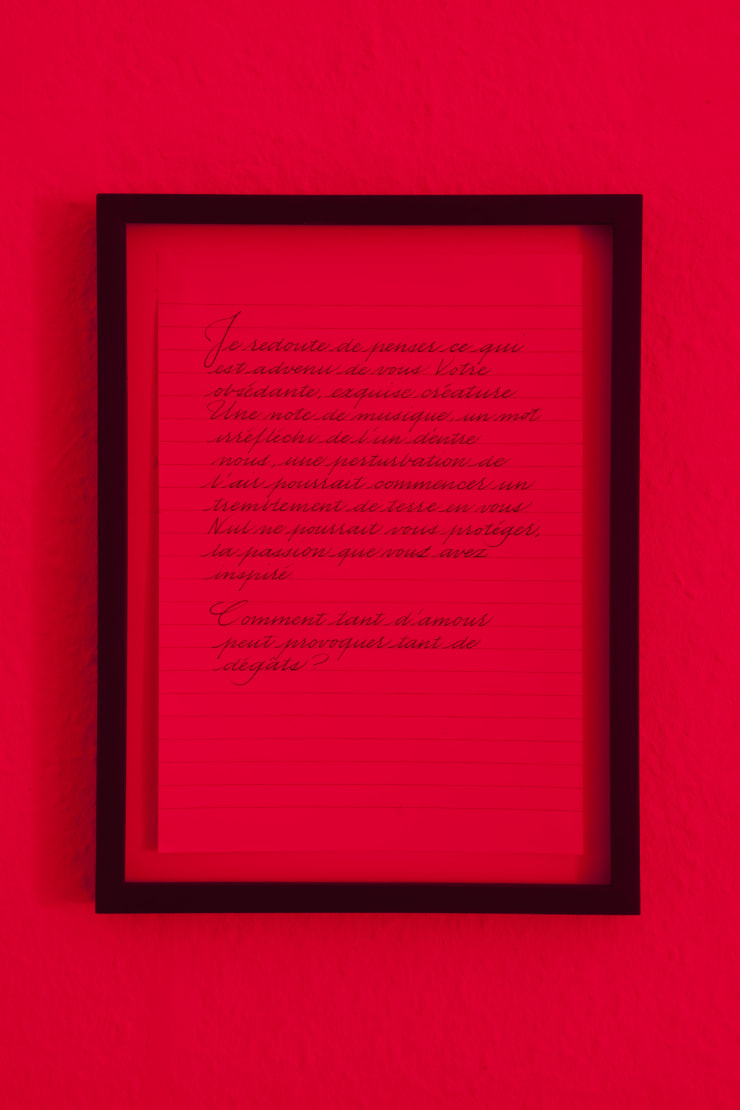 Je redoute de penser ce qui
est advenu de vous. Votre
obsédante, exquise créature.
Une note de musique, un mot
irréfléchi de l'un d'entre
nous, une perturbation de
l'air pourrait commencer un
tremblement de terre en vous.
Nul ne pourrait vous protéger,
la passion que vous avez
inspiré
Comment tant d'amour
peut provoquer tant de
dégâts ?